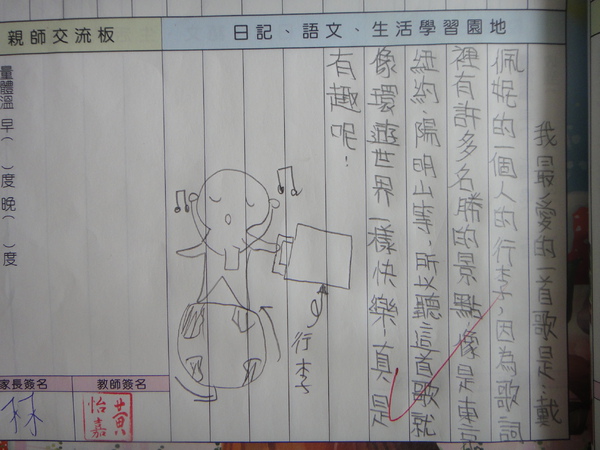 日記、語文、生活學習園地
親師交流板
我最愛的一首歌是:戴
佩妮的一個人的行李,因為歌詞
裡有許多名勝的景點像是東京
紐約、陽明山等,所以聽這首歌就
像環遊世界一樣快樂真是
有趣呢!
行李
量體溫 早( )度 晚( )度
教師簽名
黃怡嘉
家長簽名
林